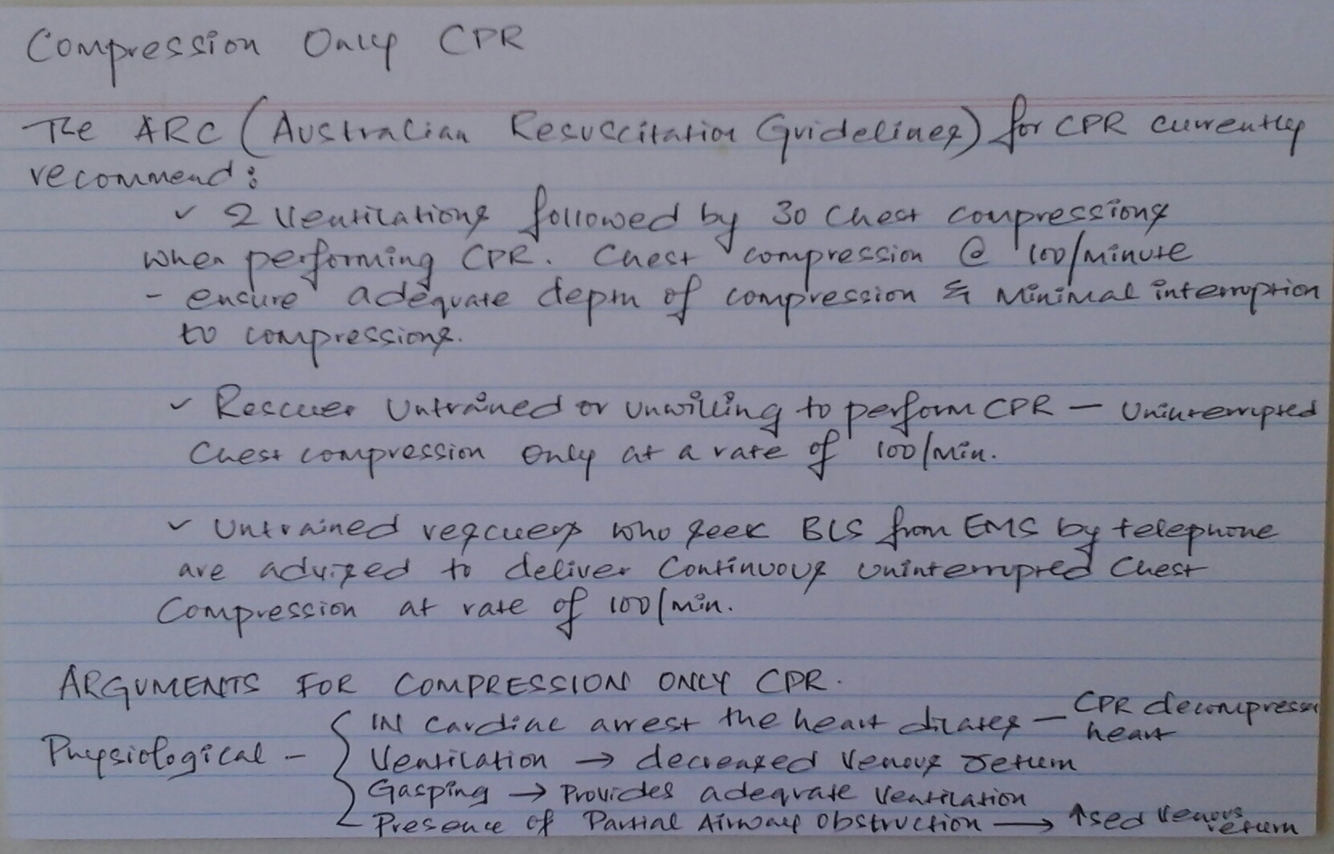 Compression Only CPR
The ARC (Australian Resuscitation Guidelines) for CPR currently
recommend:
✓ 2 Ventilations followed by 30 Chest compressions
when performing CPR. Chest compression @ 100/minute
- ensure adequate depth of compression & Minimal interruption
to compressions.
✓ Rescuer Untrained or unwilling to perform CPR — Uninterrupted
Chest compression Only at a rate of 100/min.
✓ Untrained rescuers who seek BLS from EMS by telephone
are advised to deliver Continuous uninterrupted Chest
Compression at rate of 100/min.
ARGUMENTS FOR COMPRESSION ONLY CPR.
Physiological - { IN cardiac arrest the heart dilates — CPR decompresses heart
Ventilation → decreased venous return
Gasping → Provides adequate Ventilation
Presence of Partial Airway Obstruction → ↑sed Venous return